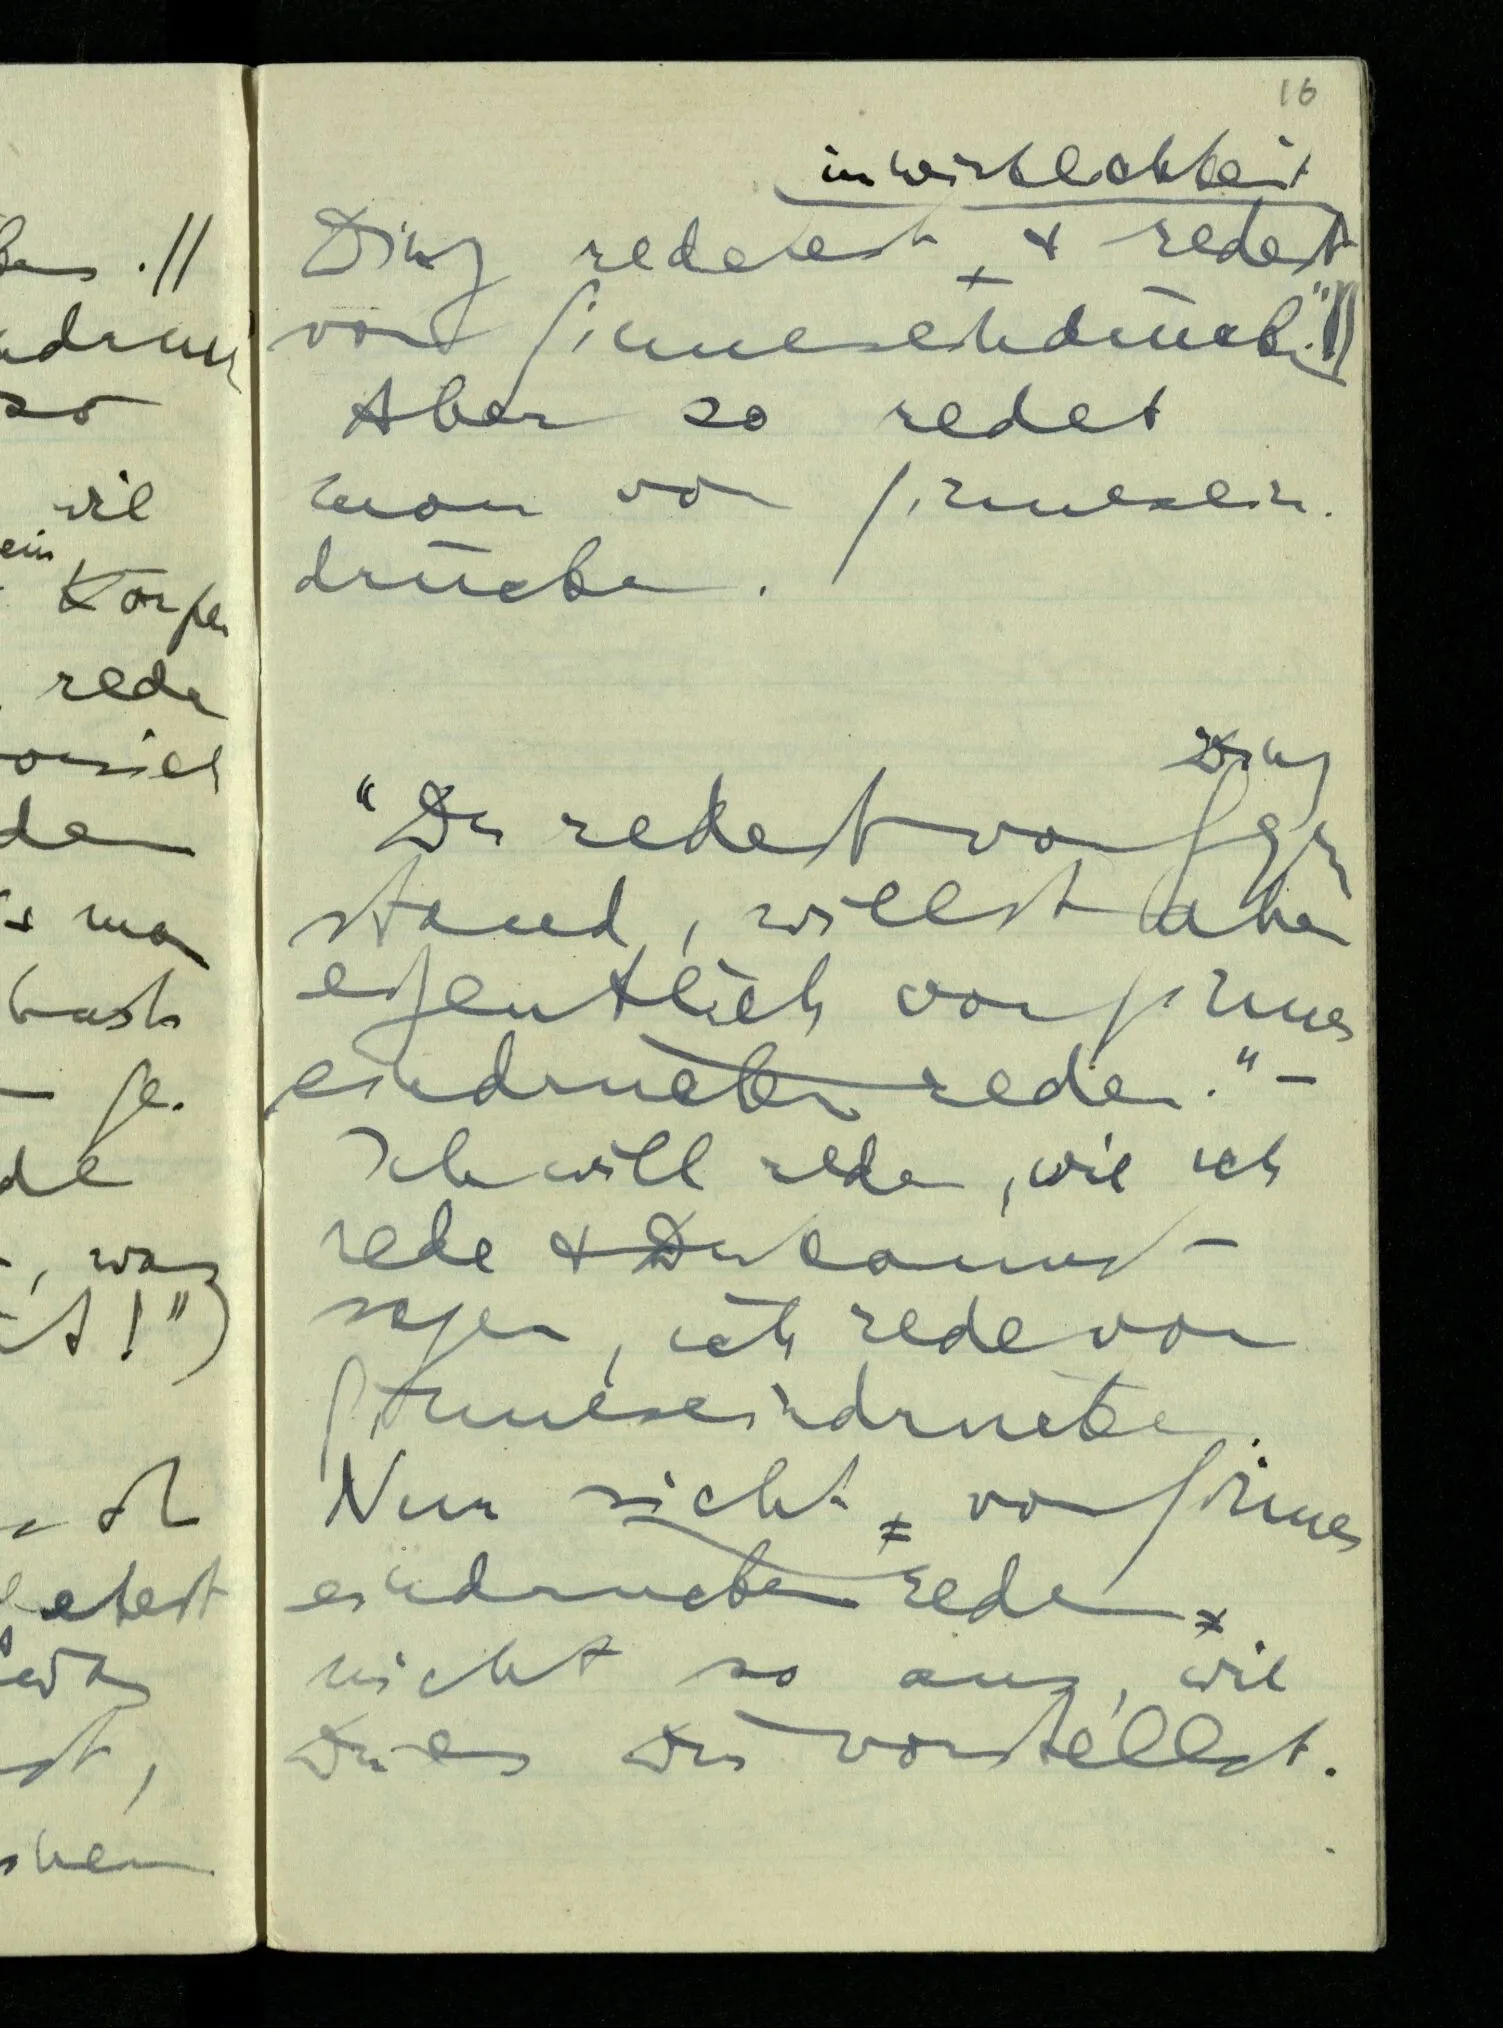 16
in Wirklichkeit
Ding redetest, & redest
von Sinneseindrücken."||
Aber so redet
man von Sinnesein-
drücken.
Ding
"Du redest vom Gegen
stand, willst aber
eigentlich von Sinnes
eindrucken reden." –
Ich will reden, wie ich
rede & Du kannst –
sagen, ich rede von
Sinneseindrucken.
Nur sieht, von Sinnes
eindrucken reden,
nicht so aus, wie
Du es Dir vorstellst.
ben. ||
so
wie
ein
Körper
reden
den
man
Ge-
de
, was
!")